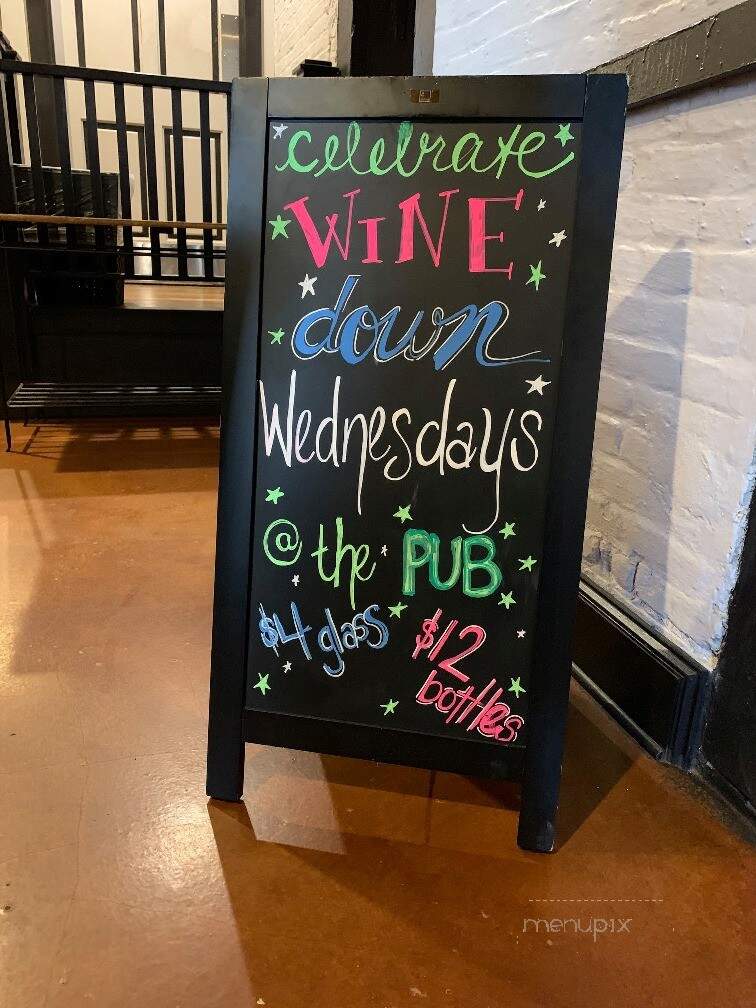 celebrate
WINE
down
Wednesdays
@ the PUB
$4 glass
$12
bottles
menupix